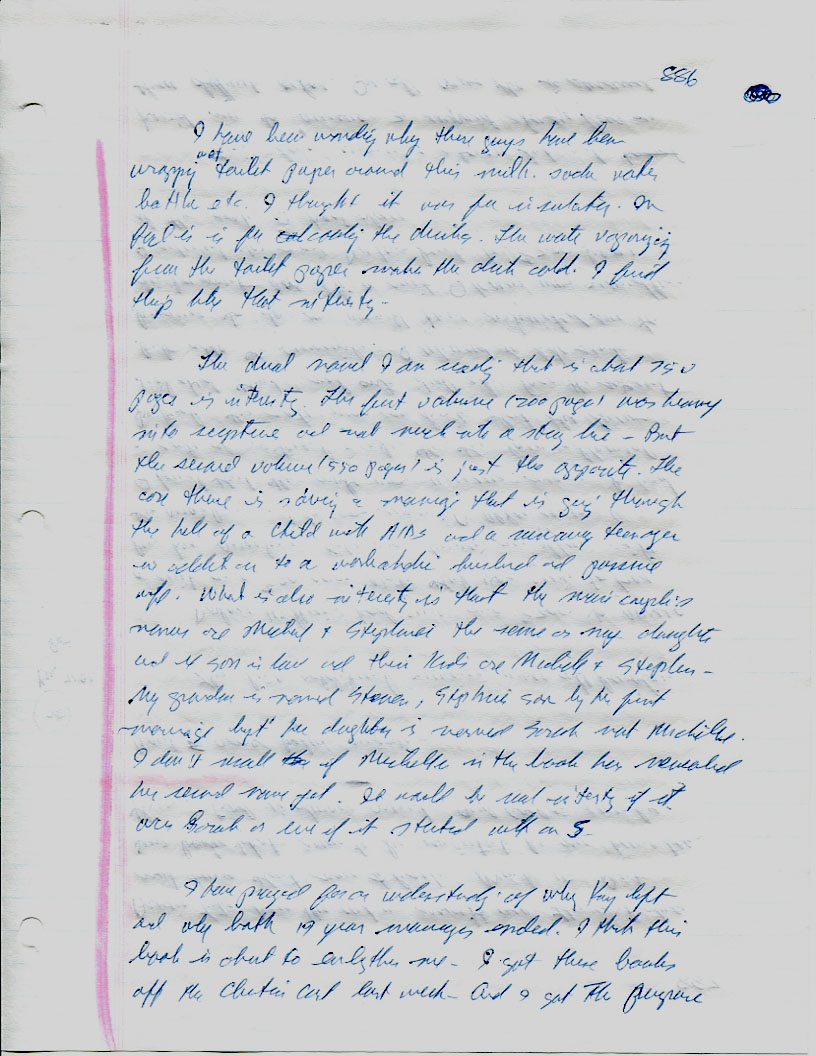 886
I have been wondering why these guys have been
wrapping wet toilet paper around this milk. soda water
bottle etc. I thought it was for insulation. In
is for cooling the drinks. The water vaporizing
from the toilet paper makes the drink cold. I find
things like that
The dual novel I am reading that is about 750
pages is The first volume (200 pages) was heavy
into scripture and not much into a story line - But
the second volume (550 pages) is just the opposite. The
there is saving a marriage that is going through
the hell of a child with AIDs and a runaway teenager
in addition to a workaholic husband and passive
wife. What is also is that the main couple's
names are Michael & Stephanie the same as my daughter
and X son in law and their kids are Michelle & Stephen -
My grandson is named Steven, Stephanie son by her first
marriage but her daughter is named Sarah not Michelle.
I don't recall if Michelle in the book has revealed
her second name yet. It would be real if it
was Sarah or even if it started with an S-
I have prayed for an understanding of why Kay left
and why both 19 year marriages ended. I think this
book is about to enlighten me - I got these books
off the Christian Cart last week - And I got The